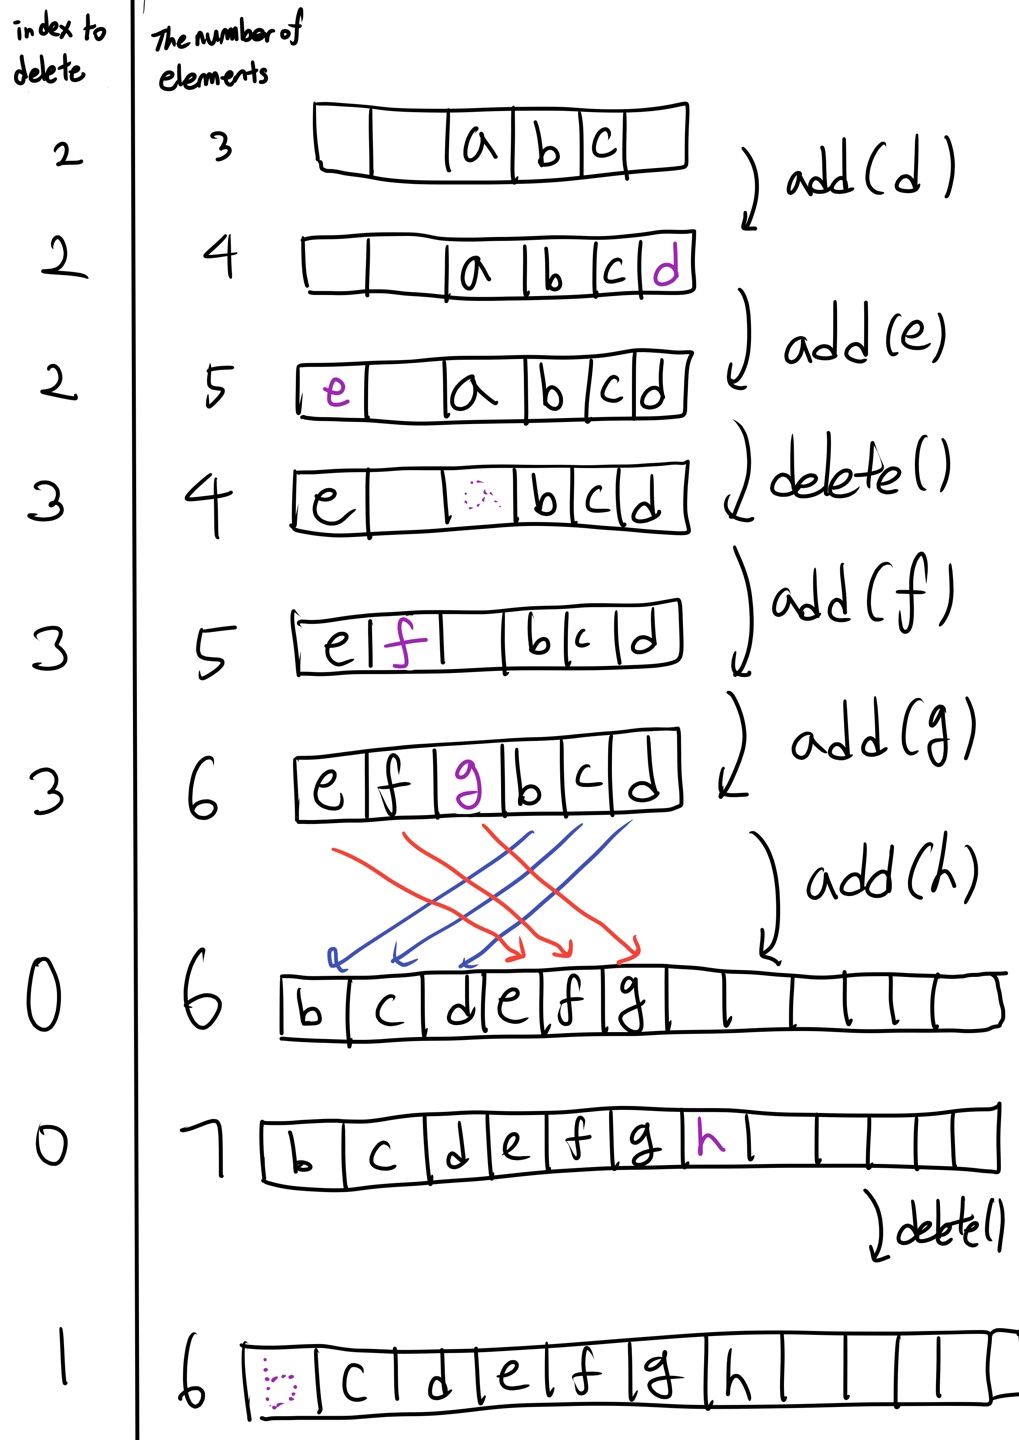 index to
delete
The number of
elements
2 3 a b c
add(d)
2 4 a b c d
add(e)
2 5 e a b c d
delete()
3 4 e a b c d
add(f)
3 5 e f b c d
add(g)
3 6 e f g b c d
add(h)
0 6 b c d e f g
0 7 b c d e f g h
delete()
1 6 b c d e f g h